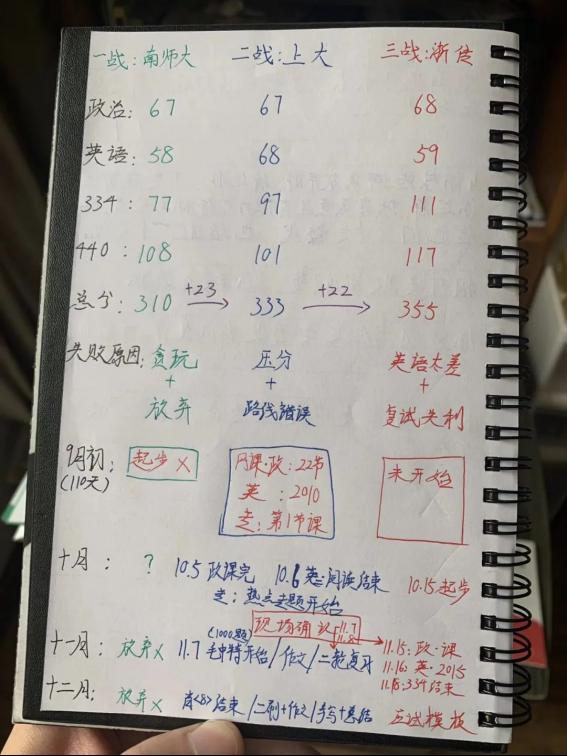 一战:南师大 二战:上大 三战:浙传
政治: 67 67 68
英语: 58 68 59
334: 77 97 111
440: 108 101 117
总分: 310 +23 333 +22 355
失败原因: 贪玩 压分 英语太差
+ + +
放弃 路线错误 复试失利
9月初: 起步X 网课·政:22节 未开始
(110天) 英:2010
走:第1节课
十月: ? 10.5 政课完 10.6 英:阅读结束 10.15起步
走:热点专题开始
现场确认 11.7
11.8
(1000题)
十一月: 放弃X 11.7 毛中特开始/作文/二轮复习 11.15:政·课
11.16:英·2015
11.18:334结束
十二月: 放弃X 肖<8>结束/二刷+作文/手写+总结 应试模板